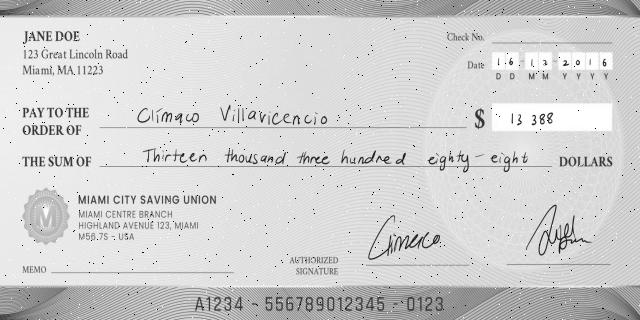 JANE DOE
123 Great Lincoln Road
Miami, MA 11223
Check No.
Date 16 12 2016
D D M M Y Y Y Y
PAY TO THE ORDER OF Clímaco Villavicencio $ 13 388
THE SUM OF Thirteen thousand three hundred eighty-eight DOLLARS
MIAMI CITY SAVING UNION
MIAMI CENTRE BRANCH
HIGHLAND AVENUE 123, MIAMI
M56.7S - USA
M
MEMO
AUTHORIZED SIGNATURE
A1234 - 556789012345 - 0123